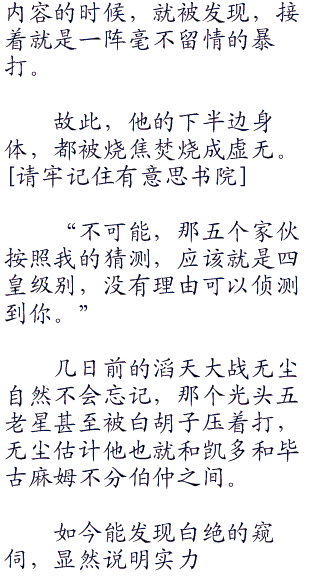 内容的时候，就被发现，接
着就是一阵毫不留情的暴
打。
故此，他的下半边身
体，都被烧焦焚烧成虚无。
[请牢记住有意思书院]
“不可能，那五个家伙
按照我的猜测，应该就是四
皇级别，没有理由可以侦测
到你。”
几日前的滔天大战无尘
自然不会忘记，那个光头五
老星甚至被白胡子压着打，
无尘估计他也就和凯多和毕
古麻姆不分伯仲之间。
如今能发现白绝的窥
伺，显然说明实力